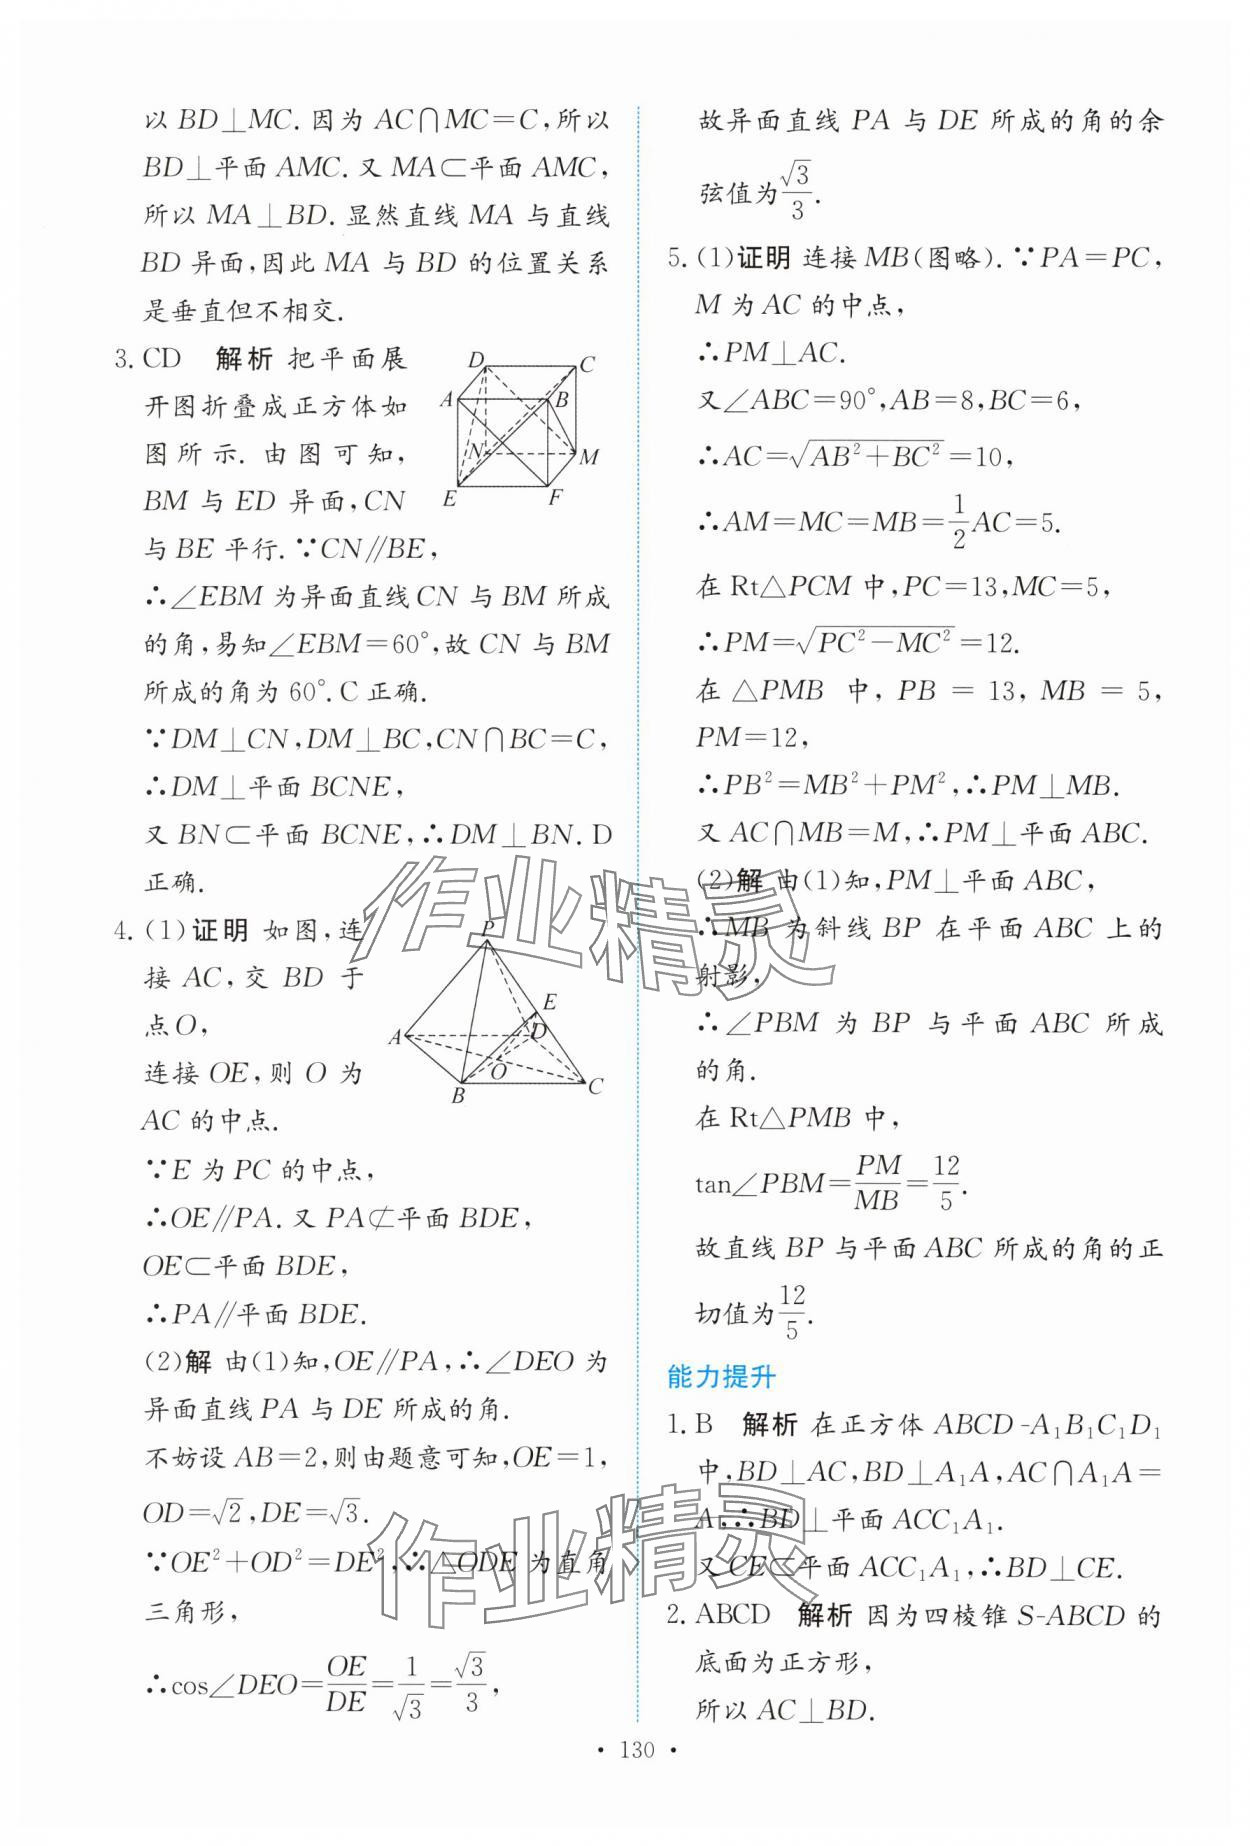 以 BD⊥MC. 因为 AC∩MC=C,所以
BD⊥平面 AMC. 又 MA⊂平面 AMC,
所以 MA⊥BD. 显然直线 MA 与直线
BD 异面,因此 MA 与 BD 的位置关系
是垂直但不相交.
3. CD 解析 把平面展
开图折叠成正方体如
图所示. 由图可知,
BM 与 ED 异面,CN
与 BE 平行. ∵CN∥BE,
D C
A B
N M
E F
∴∠EBM 为异面直线 CN 与 BM 所成
的角,易知∠EBM=60°,故 CN 与 BM
所成的角为 60°. C 正确.
∵DM⊥CN,DM⊥BC,CN∩BC=C,
∴DM⊥平面 BCNE,
又 BN⊂平面 BCNE,∴DM⊥BN. D
正确.
4. (1)证明 如图,连
接 AC,交 BD 于
点 O,
连接 OE,则 O 为
AC 的中点.
P
E
A D
O
B C
∵E 为 PC 的中点,
∴OE∥PA. 又 PA⊄平面 BDE,
OE⊂平面 BDE,
∴PA∥平面 BDE.
(2)解 由(1)知,OE∥PA,∴∠DEO 为
异面直线 PA 与 DE 所成的角.
不妨设 AB=2,则由题意可知,OE=1,
OD=√2,DE=√3.
∵OE²+OD²=DE²,∴△ODE 为直角
三角形,
∴cos∠DEO=OE/DE=1/√3=√3/3,
故异面直线 PA 与 DE 所成的角的余
弦值为√3/3.
5. (1)证明 连接 MB(图略). ∵PA=PC,
M 为 AC 的中点,
∴PM⊥AC.
又∠ABC=90°,AB=8,BC=6,
∴AC=√(AB²+BC²)=10,
∴AM=MC=MB=1/2AC=5.
在 Rt△PCM 中,PC=13,MC=5,
∴PM=√(PC²−MC²)=12.
在 △PMB 中, PB = 13, MB = 5,
PM=12,
∴PB²=MB²+PM²,∴PM⊥MB.
又 AC∩MB=M,∴PM⊥平面 ABC.
(2)解 由(1)知,PM⊥平面 ABC,
∴MB 为斜线 BP 在平面 ABC 上的
射影,
∴∠PBM 为 BP 与平面 ABC 所成
的角.
在 Rt△PMB 中,
tan∠PBM=PM/MB=12/5.
故直线 BP 与平面 ABC 所成的角的正
切值为12/5.
能力提升
1. B 解析 在正方体 ABCD-A₁B₁C₁D₁
中,BD⊥AC,BD⊥A₁A,AC∩A₁A=
A,∴BD⊥平面 ACC₁A₁.
又 CE⊂平面 ACC₁A₁,∴BD⊥CE.
2. ABCD 解析 因为四棱锥 S-ABCD 的
底面为正方形,
所以 AC⊥BD.
• 130 •
作业精灵
作业精灵